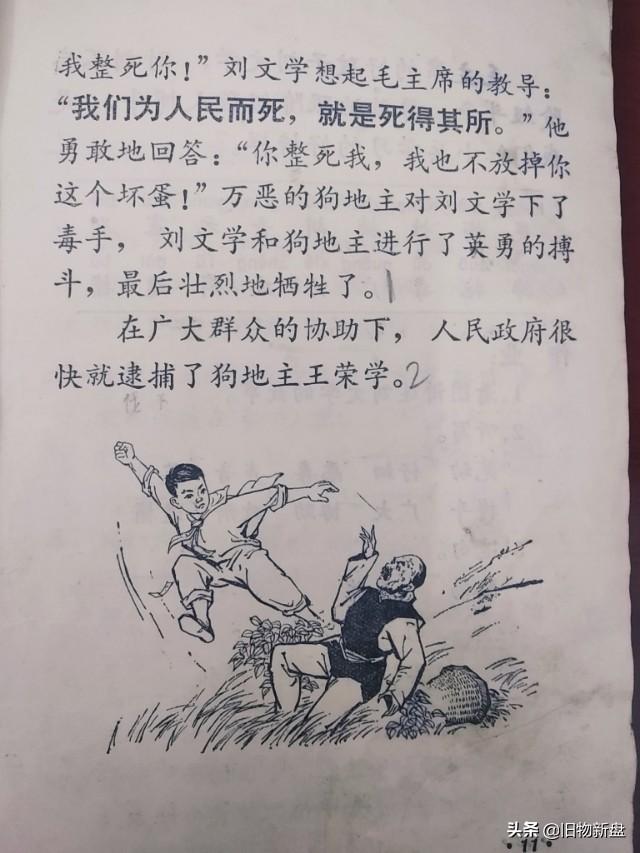 我整死你！”刘文学想起毛主席的教导：
“我们为人民而死，就是死得其所。”他
勇敢地回答：“你整死我，我也不放掉你
这个坏蛋！”万恶的狗地主对刘文学下了
毒手，刘文学和狗地主进行了英勇的搏
斗，最后壮烈地牺牲了。1
在广大群众的协助下，人民政府很
快就逮捕了狗地主王荣学。2
头条 @旧物新盘
·11·